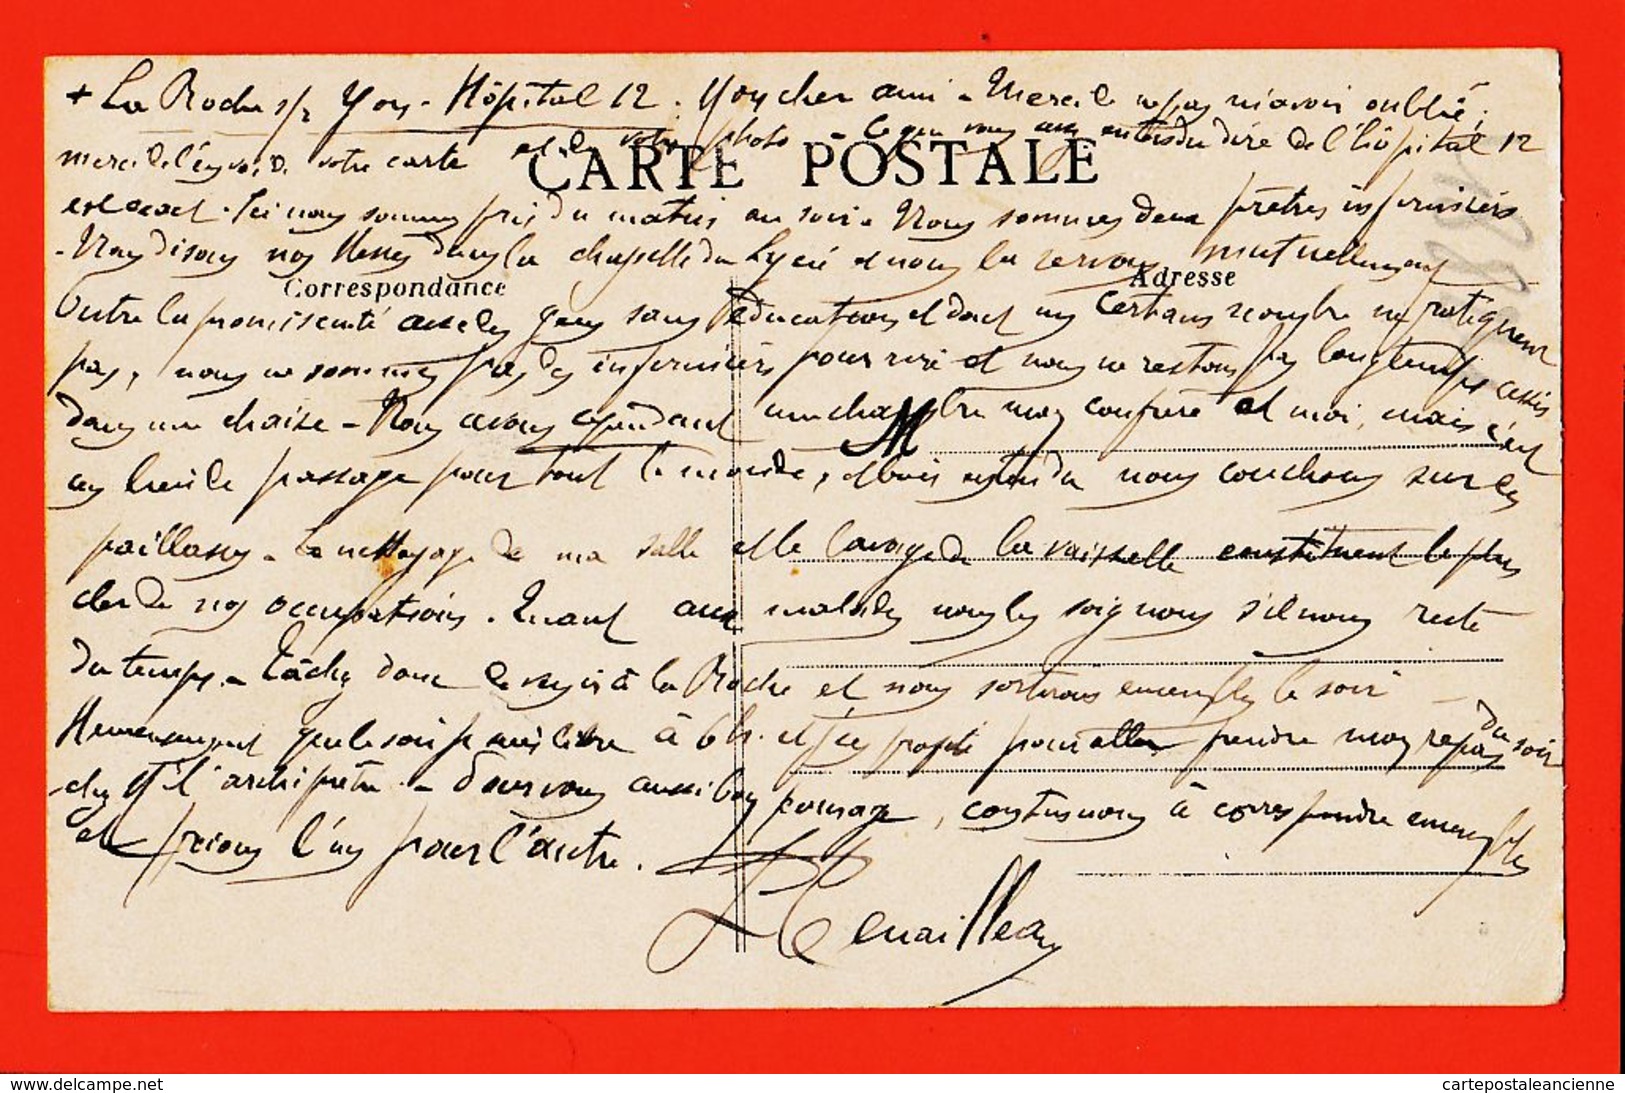 + La Roche s/ Yon - Hôpital 12. Mon cher ami - Merci de ne pas m'avoir oublié;
merci de l'envoi de votre carte et de votre photo - Ce que vous avez entendu dire de l'hôpital 12
CARTE POSTALE
est exact. Ici nous sommes pris du matin au soir. Nous sommes deux prêtres infirmiers
- Nous disons nos Messes dans la chapelle du Lycée et nous la servons mutuellement
Correspondance
Adresse
Outre la promiscuité avec des gens sans éducation et dont un certain nombre ne pratiquent
pas, nous ne sommes pas des infirmiers pour rire et nous ne restons pas longtemps assis
dans une chaise - Nous avons cependant une chambre mon confrère et moi, mais c'est
M
un lieu de passage pour tout le monde, et bien entendu nous couchons sur des
paillasses - Le nettoyage de ma salle et le lavage de la vaisselle constituent le plus
clair de nos occupations. Quant aux malades nous les soignons s'il nous reste
du temps - Tâchez donc de venir à la Roche et nous sortirons ensemble le soir -
Heureusement que le soir je suis libre à 6 h. et j'en profite pour aller prendre mon repas du soir
chez M. l'archiprêtre. - Donc vous aussi bon courage, continuons à correspondre ensemble
et prions l'un pour l'autre.
delcampe.net
cartepostaleancienne